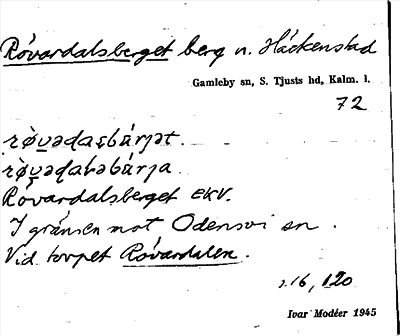 Rövardalsberget berg n. Häckenstad
Gamleby sn, S. Tjusts hd, Kalm. l.
72
Rövardalsberget EKV.
I gränsen mot Odensvi sn.
Vid torpet Rövardalen.
s.16, 120
Ivar Modéer 1945